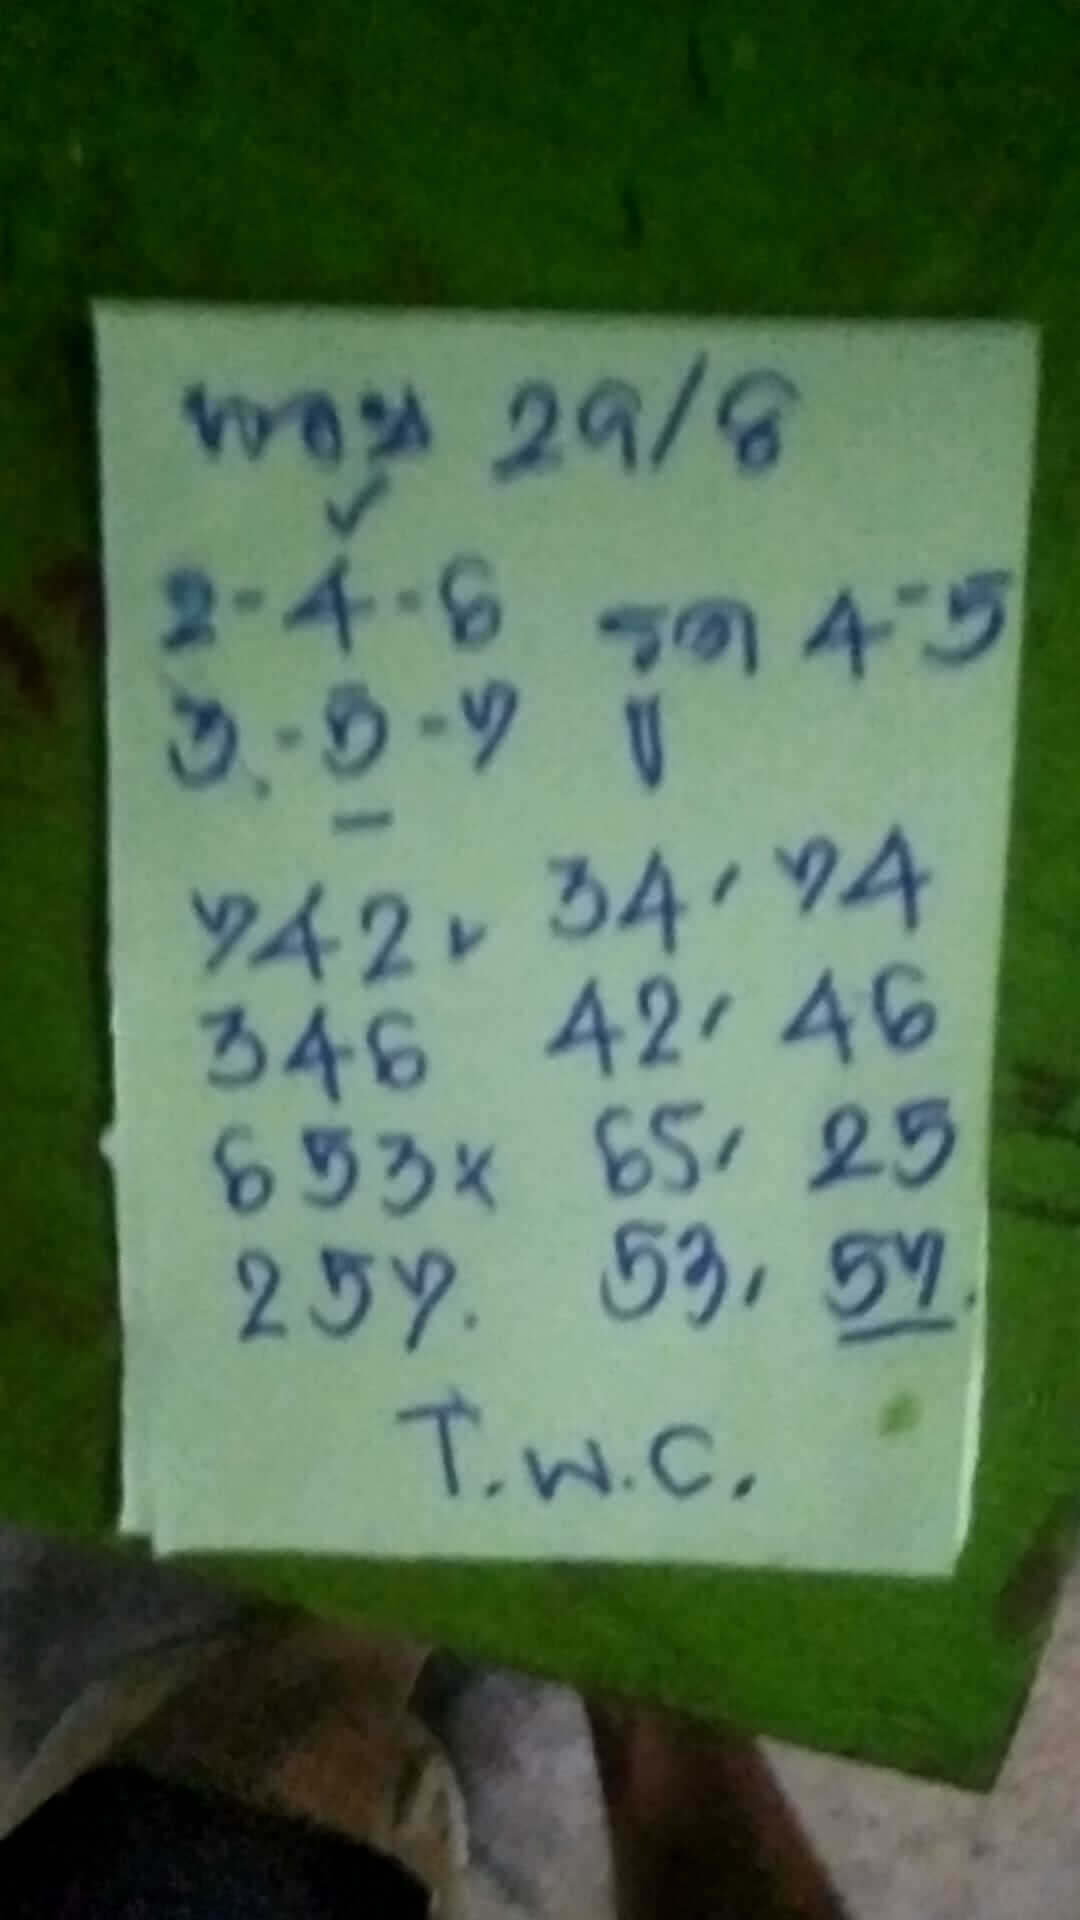 29/8
✓
2-4-6 รูด 4-5
3-5-7
742 34, 74
346 42, 46
653x 65, 25
257. 53, 57.
T.W.C.